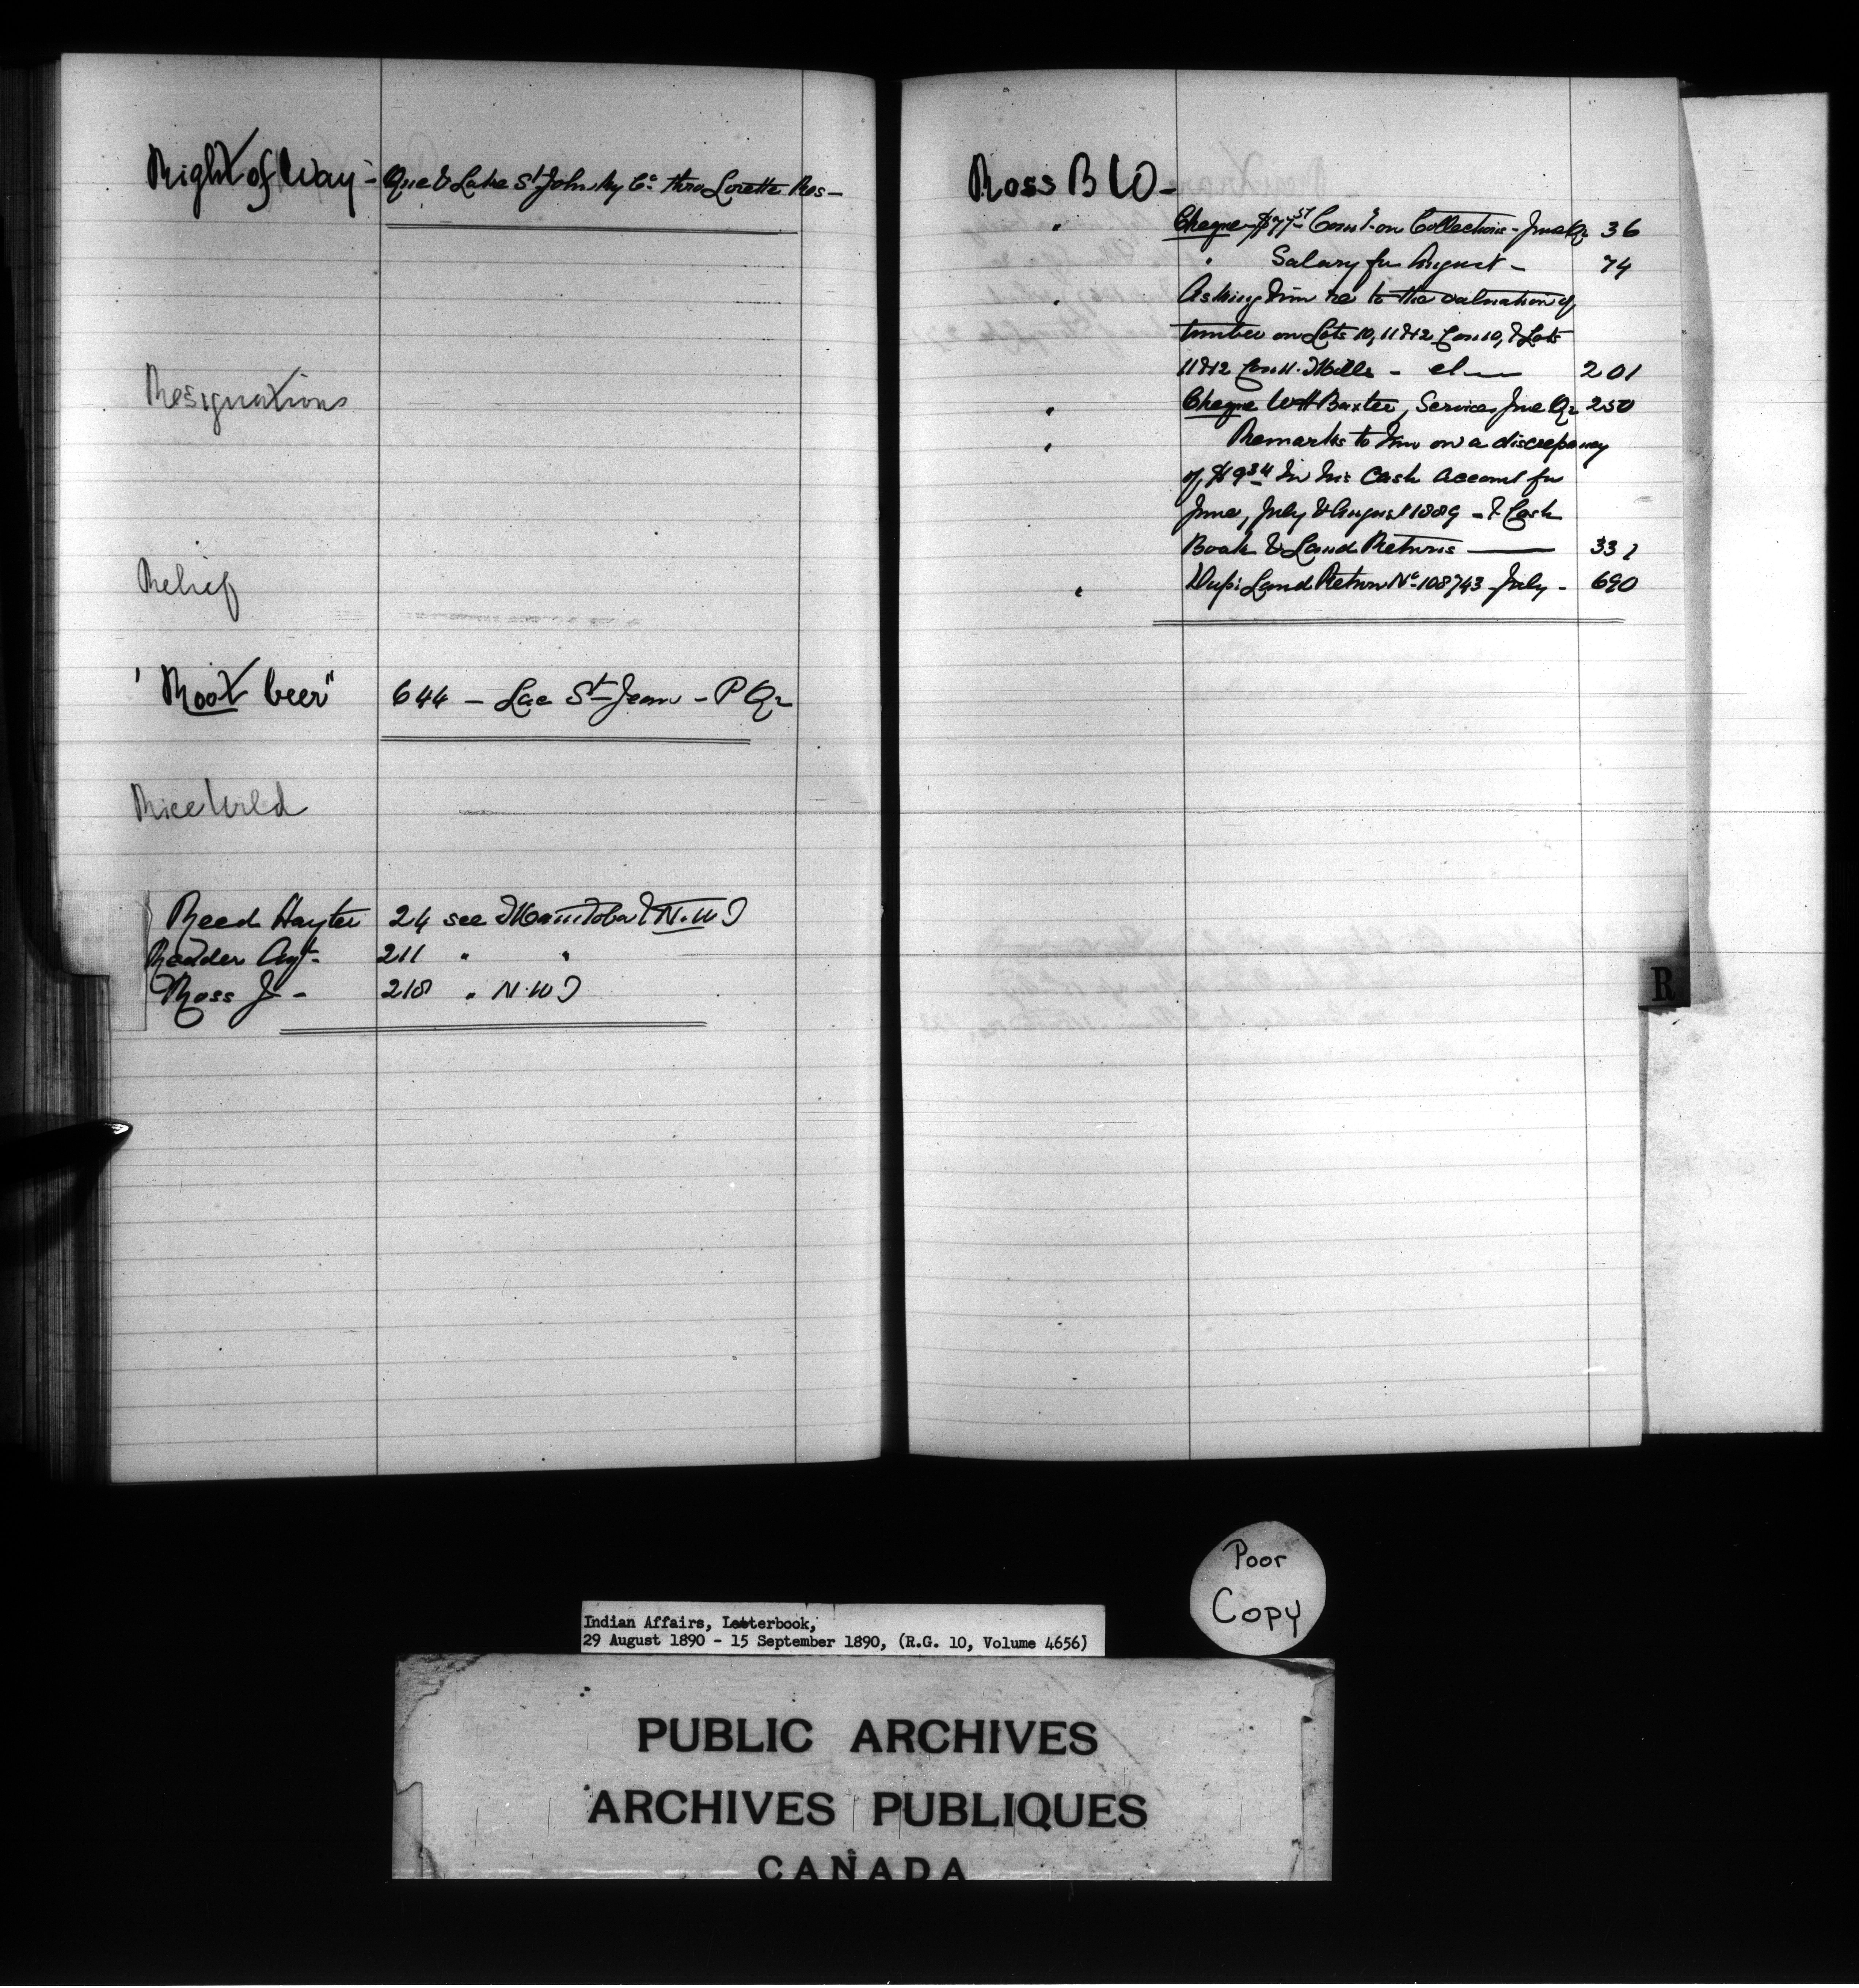 Right of Way - Que & Lake St John Ry Co. thro Lorette Res -
Resignations
Relief
"Root beer" 644 - Lac St Jean - P Q
Rice Wild
Reed Hayter 24 see Manitoba & N.W T
Reader Agt. 211 " "
Ross J - 218 " N.W T
Ross B W -
" Cheque $77.51 Com'n on Collections - June Qr 36
" " Salary for August - 74
" Asking him re to the valuation of
timber on Lots 10, 11 & 12 Con 10, & Lots
11 & 12 Con 11. Mills - 201
" Cheque W H Baxter, Services June Qr 250
" Remarks to him on a discrepancy
of $9.34 in his Cash Account for
June, July & August 1889 - & Cash
Book & Land Returns 331
" Dup: Land Return No. 108743 - July - 690
R
Poor
Copy
Indian Affairs, Letterbook,
29 August 1890 - 15 September 1890, (R.G. 10, Volume 4656)
PUBLIC ARCHIVES
ARCHIVES PUBLIQUES
CANADA